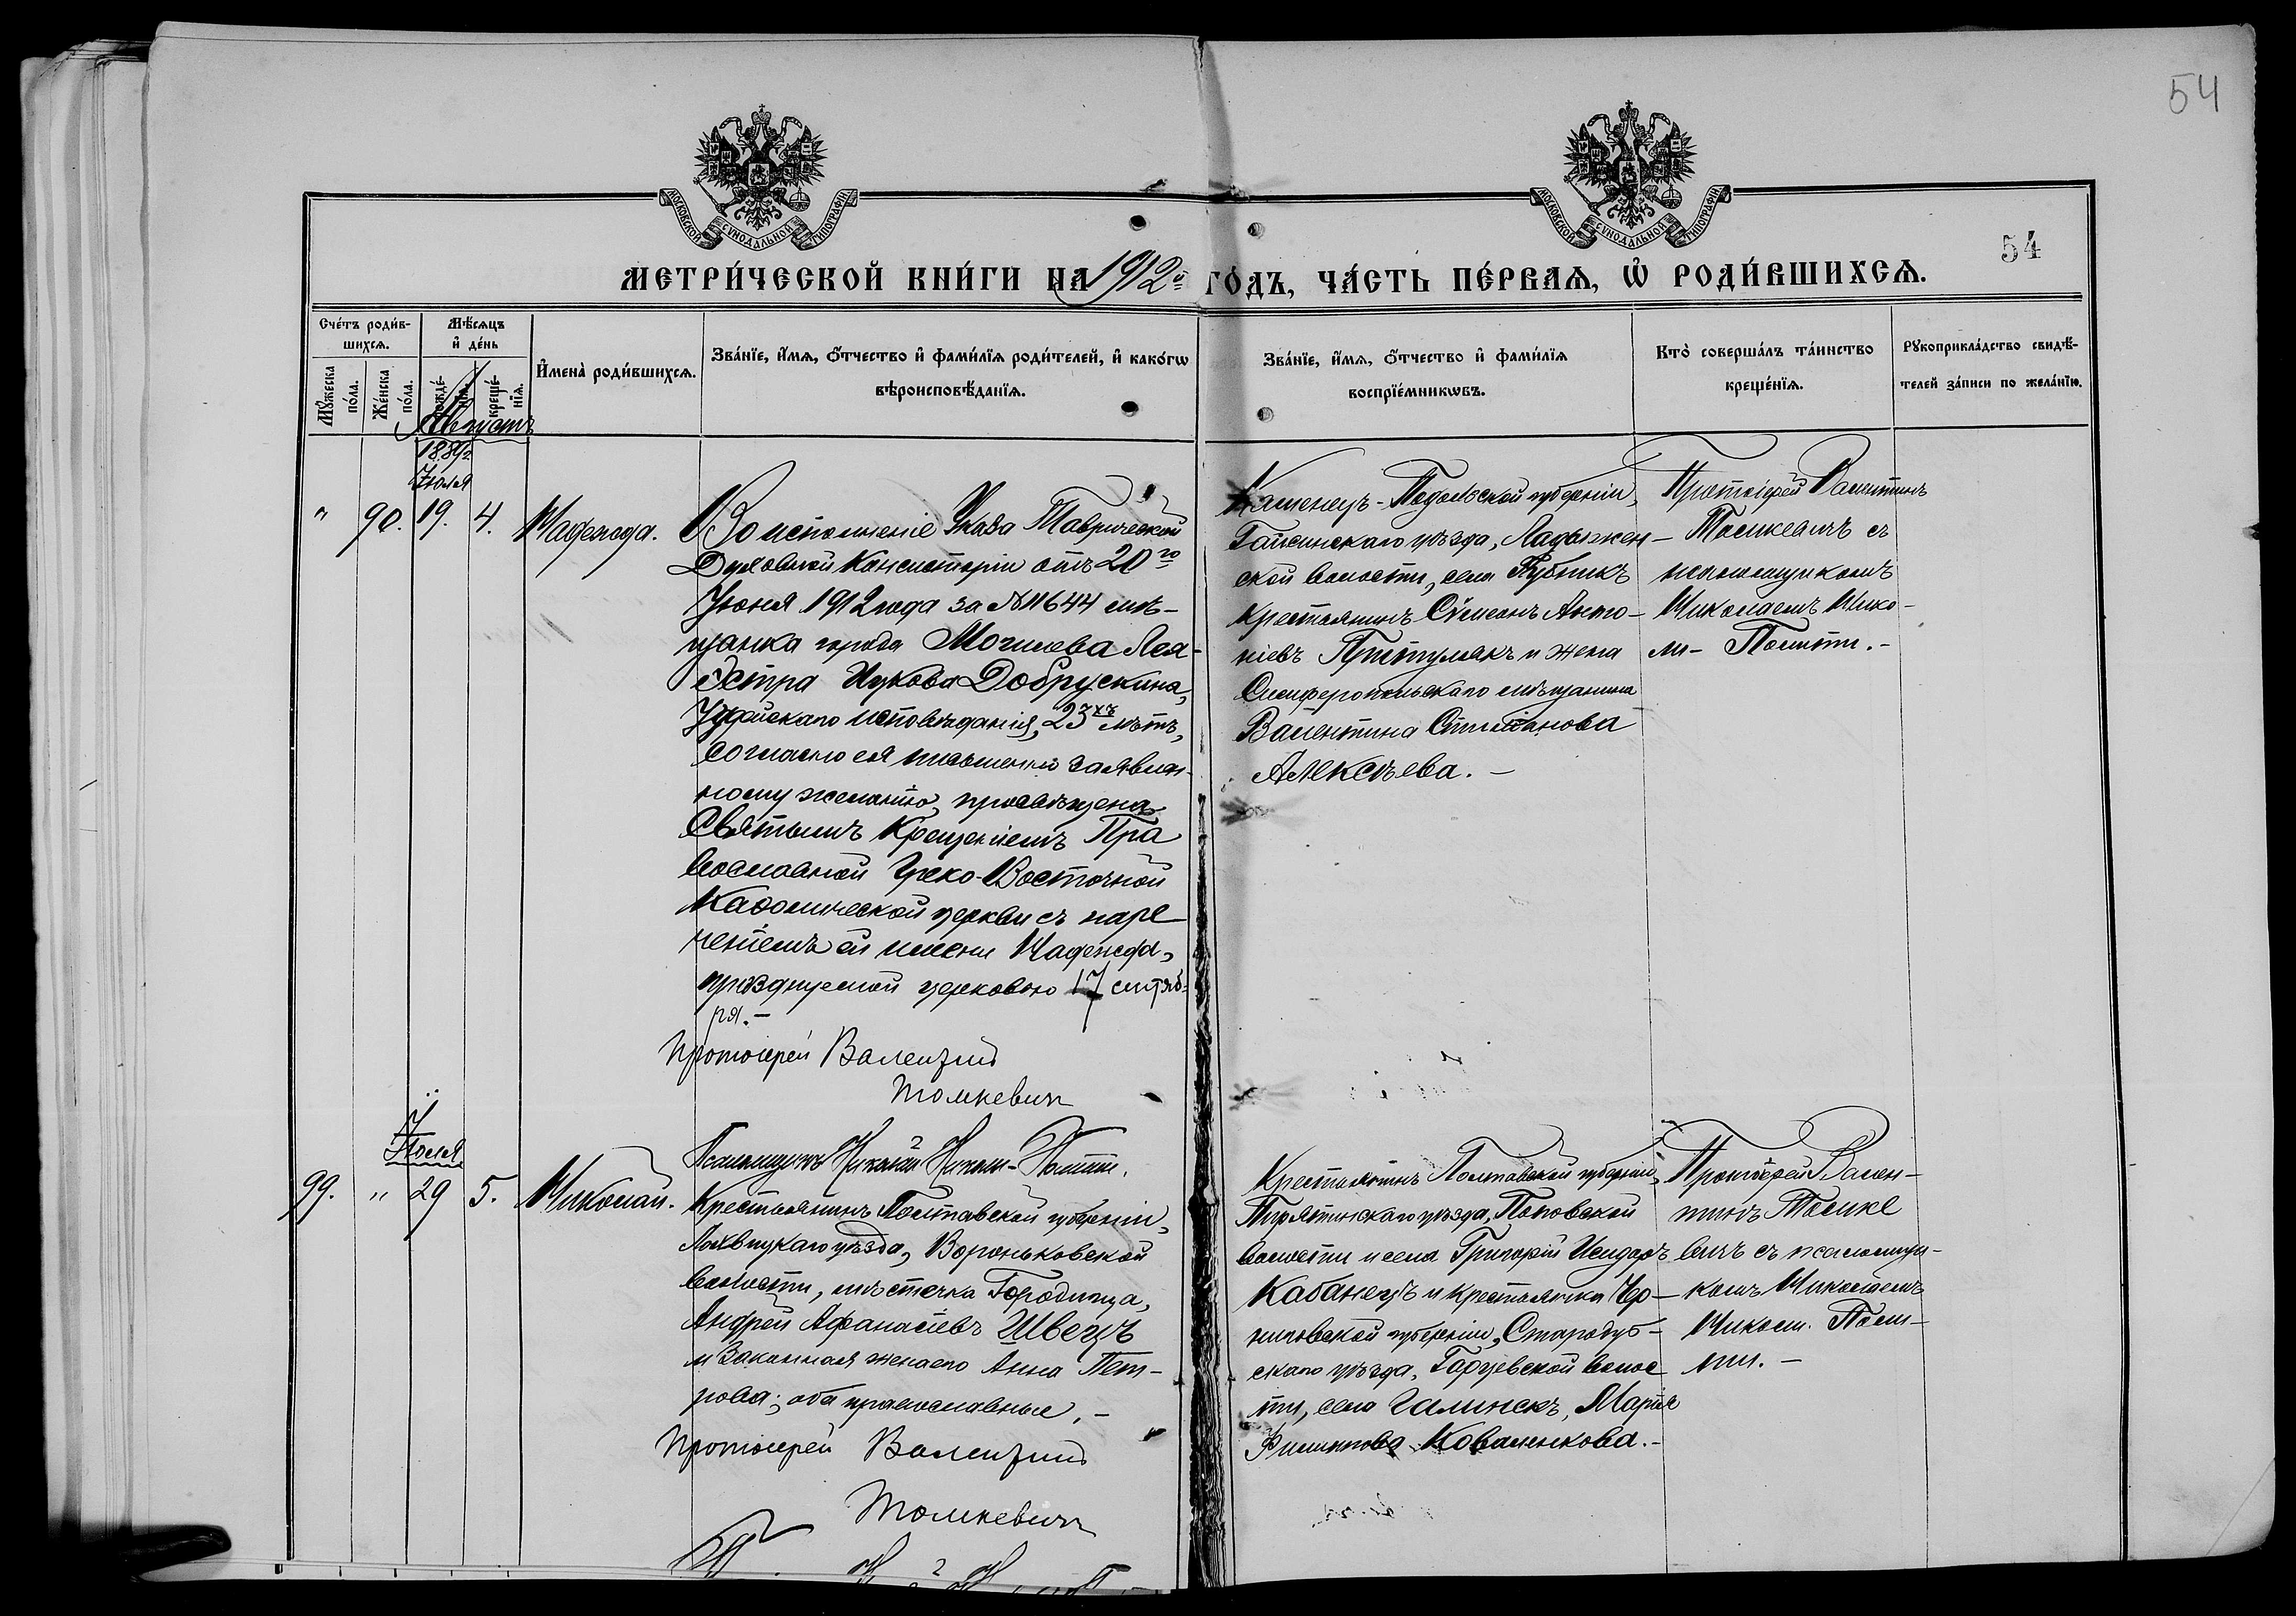 54
МОСКОВСКОЙ СѴНОДАЛЬНОЙ ТИПОГРАФІИ
МОСКОВСКОЙ СѴНОДАЛЬНОЙ ТИПОГРАФІИ
54
МЕТРИ́ЧЕСКОЙ КНИ́ГИ НА 1912й ГО́ДЪ, ЧА́СТЬ ПЕ́РВАѦ, Ѡ҆ РОДИ́ВШИХСѦ.
Сче́тъ роди́в-
шихсѧ.
Мѣ́сѧцъ
и҆ де́нь
И҆мена̀ роди́вшихсѧ.
Зва́нїе, и҆́мѧ, ѻ҆́тчество и҆ фами́лїѧ роди́телей, и҆ како́гѡ
вѣроисповѣ́данїѧ.
Зва́нїе, и҆́мѧ, ѻ҆́тчество и҆ фами́лїѧ
воспрїе́мникѡвъ.
Кто̀ соверша́лъ та́инство
креще́нїѧ.
Рꙋкоприкла́дство свидѣ́-
телей за́писи по жела́нїю.
Мꙋ́жеска
по́ла.
Же́нска
по́ла.
рожде́-
нїѧ.
креще́-
нїѧ.
Августъ
1889г.
Іюля
" 90. 19. 4. Надежда.
Во исполненіе Указа Таврической
Духовной Консисторіи отъ 20го
Іюня 1912 года за № 11644 мѣ-
щанка города Могилева Лея-
Эстра Ицкова Добрускина,
Іудейскаго исповѣданія, 23хъ лѣтъ,
согласно ея письменно заявлен-
ному желанію, просвѣщена
Святымъ Крещеніемъ Пра
вославной Греко-Восточной
Каѳолической церкви съ наре
ченіемъ ей имени Надежда,
празднуемой церковью 17 сентяб-
ря. —
Протоіерей Валентинъ
Томкевичъ
Псаломщикъ Николай Николи-Полити.
Каменецъ-Подольской губерніи,
Гайсинскаго уѣзда, Ладыжен-
ской волости, села Губникъ
крестьянинъ Сѵмеонъ Анто-
ніевъ и жена
Симферопольскаго мѣщанина
Валентина
Алексѣева. —
Протоіерей Валентинъ
Томкевичъ съ
псаломщикомъ
Николаемъ Нико-
ли-Полити. —
Іюля
99. " 29 5. Николай.
Крестьянинъ Полтавской губерніи,
Лохвицкаго уѣзда, Вороньковской
волости, мѣстечка Городища,
Андрей Афанасіевъ Швецъ
и законная жена его Анна Пет-
рова; оба православные. —
Протоіерей Валентинъ
Томкевичъ
Крестьянинъ Полтавской губерніи,
Пирятинскаго уѣзда, Поповской
волости и села Григорій Исидоръ
Кабанецъ и крестьянка Чер-
ниговской губерніи, Стародуб-
скаго уѣзда, волос
ти, села Галинскъ, Марія
Филиппова Коваленкова. —
Протоіерей Вален-
тинъ Томке
вичъ съ псаломщи-
комъ Николаемъ
Николи-Поли-
ти. —